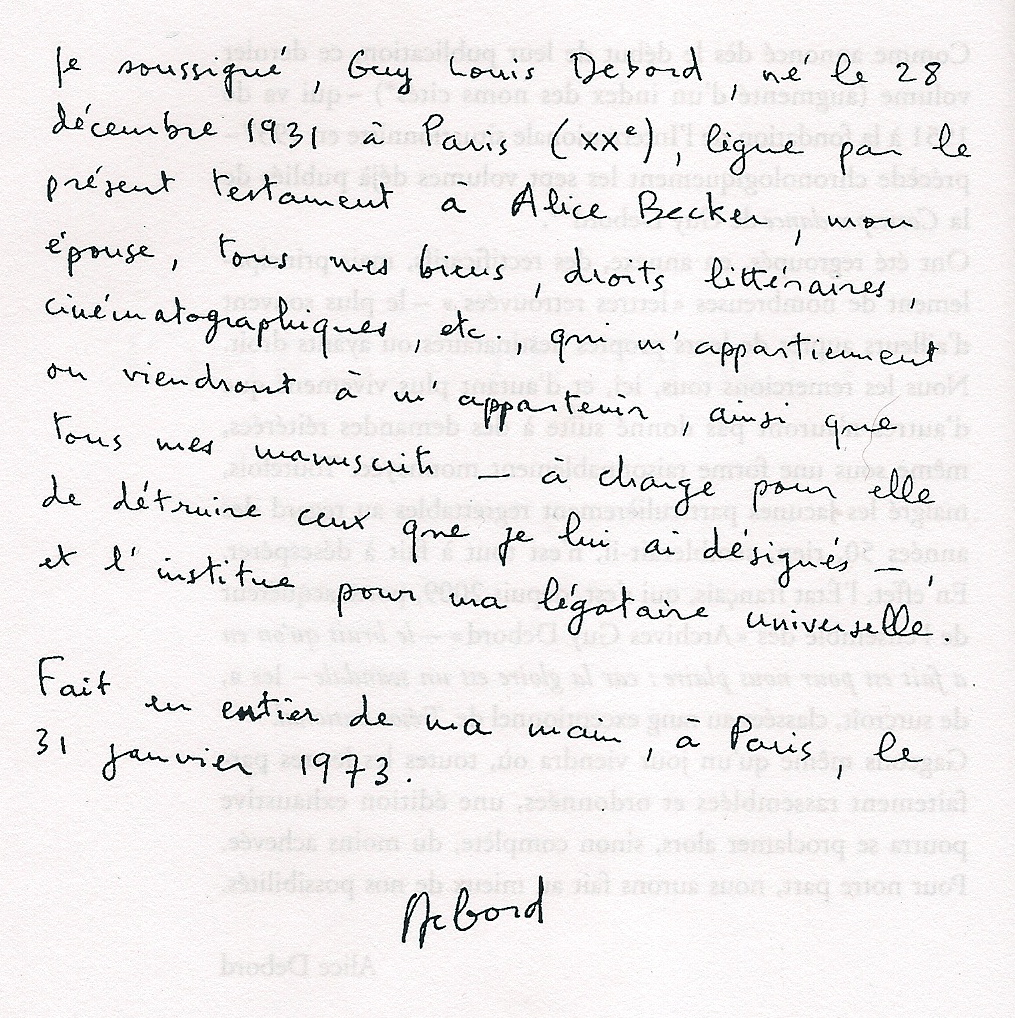 Je soussigné, Guy Louis Debord, né le 28
décembre 1931 à Paris (XXe), lègue par le
présent testament à Alice Becker, mon
épouse, tous mes biens, droits littéraires,
cinématographiques, etc., qui m'appartiennent
ou viendront à m'appartenir, ainsi que
tous mes manuscrits – à charge pour elle
de détruire ceux que je lui ai désignés –,
et l'institue pour ma légataire universelle.
Fait en entier de ma main, à Paris, le
31 janvier 1973.
Debord